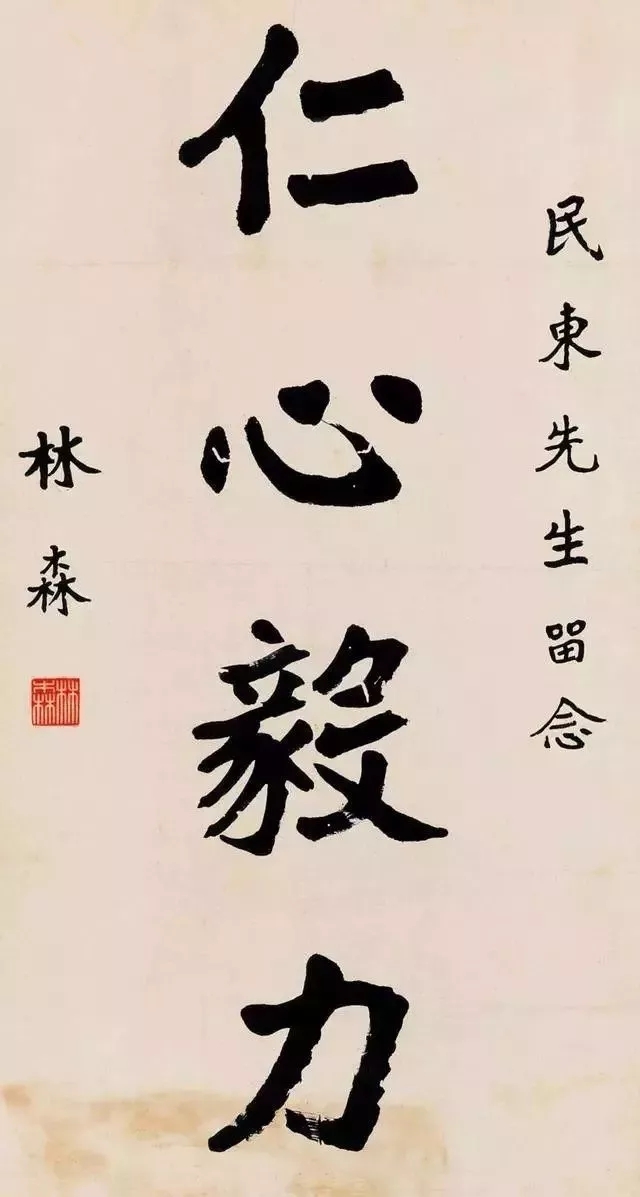 民東先生畱念
仁心毅力
林森
林森